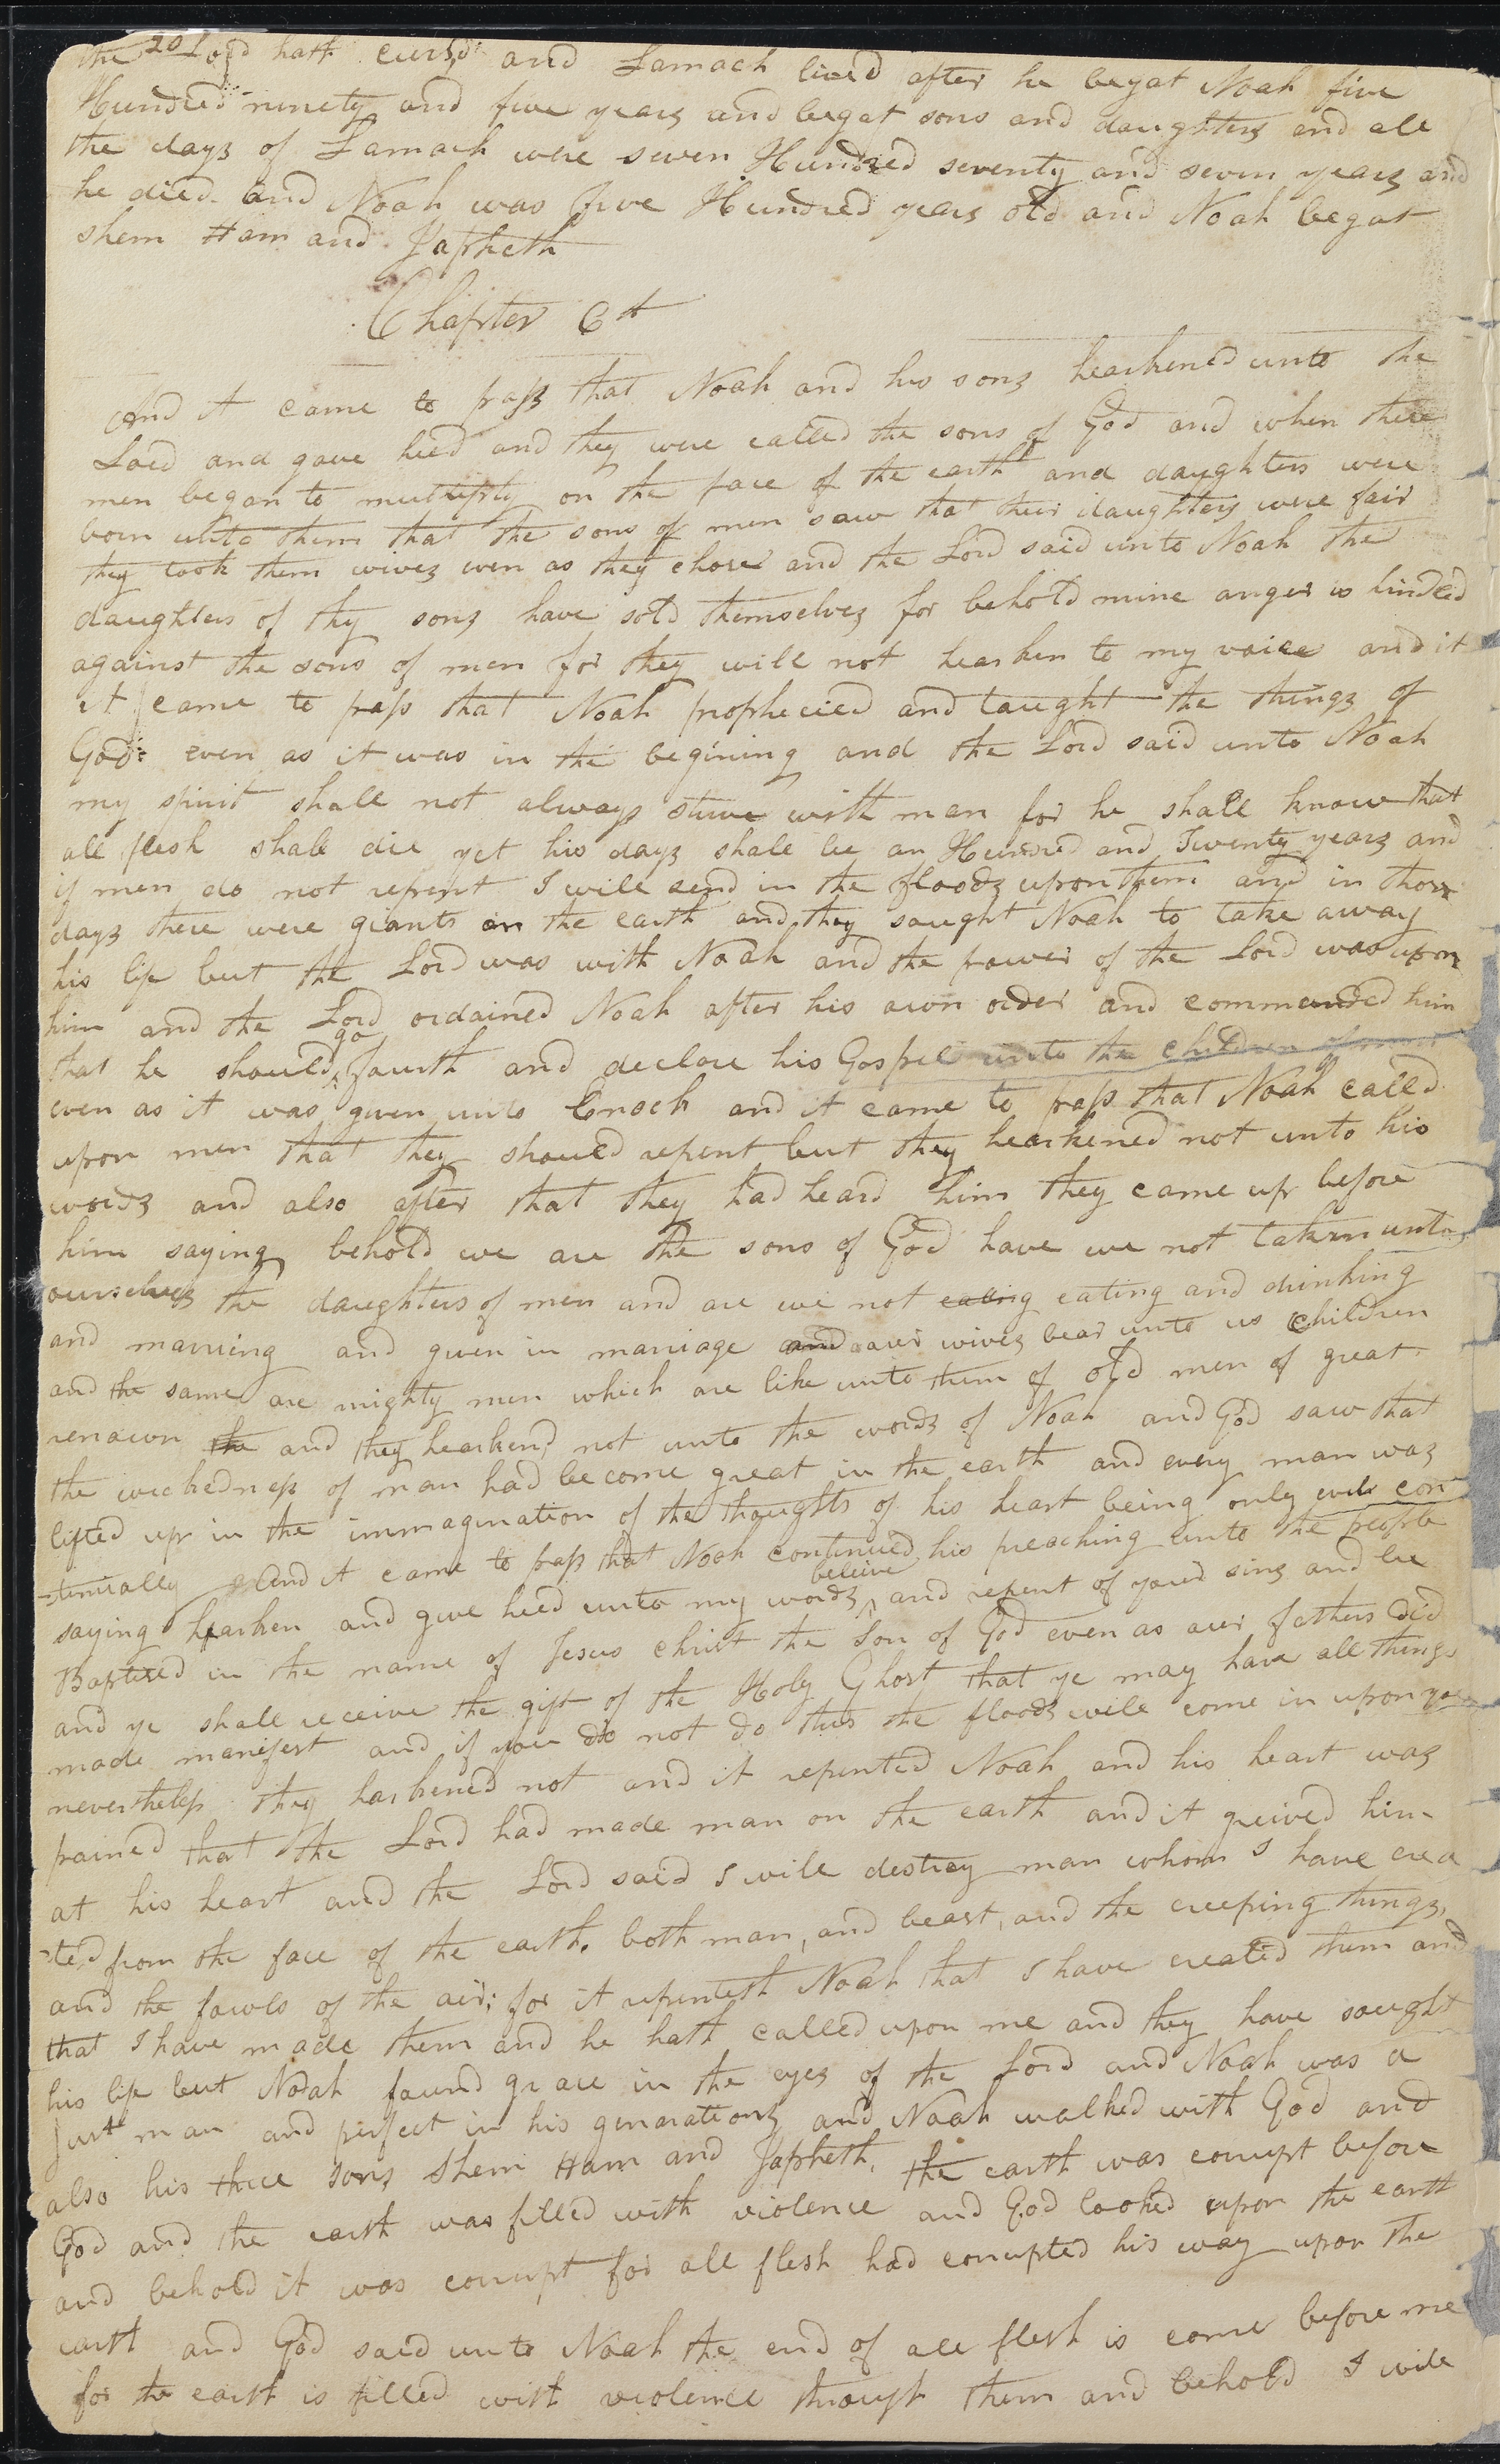 20
the Lord hath cursd and Lamach lived after he begat Noah five
Hundred ninety and five years and begat sons and daughters and all
the days of Lamach were seven Hundred seventy and seven years and
he died and Noah was five Hundred years old and Noah begat
shem Ham and Japheth
Chapter 6th
And it came to pass that Noah and his sons hearkened unto the
Lord and gave heed and they were called the sons of God and when these
men began to multiply on the face of the earth and daughters were
born unto them that the sons of men saw that their daughters were fair
they took them wives even as they chose and the Lord said unto Noah the
daughters of thy sons have sold themselves for behold mine anger is kindled
against the sons of men for they will not hearken to my voice and it
it came to pass that Noah prophecied and taught the things of
God even as it was in the begining and the Lord said unto Noah
my spirit shall not always strive with man for he shall know that
all flesh shall die yet his days shall be an Hundred and Twenty years and
if men do not repent I will send in the floods upon them and in those
days there were giants on the earth and they saught Noah to take away
his life but the Lord was with Noah and the power of the Lord was upon
him and the Lord ordained Noah after his own order and commanded him
that he should go fourth and declare his Gospel unto the children of men
even as it was given unto Enoch and it came to pass that Noah called
upon men that they should repent but they hearkened not unto his
words and also after that they had heard him they came up before
him saying behold we are the sons of God have we not taken unto
ourselves the daughters of men and are we not eating eating and drinking
and marrying and given in marriage and our wives bear unto us children
and the same are mighty men which are like unto them of old men of great
renown the and they hearkend not unto the words of Noah and God saw that
the wickedness of man had become great in the earth and every man was
lifted up in the immagination of the thoughts of his heart being only evil con
-tinually and it came to pass that Noah continued his preaching unto the people
saying hearken and give heed unto my words believe and repent of your sins and be
Baptised in the name of Jesus christ the Son of God even as our fathers did
and ye shall receive the gift of the Holy Ghost that ye may have all things
made manifest and if you do not do this the floods will come in upon you
nevertheless they harkened not and it repented Noah and his heart was
pained that the Lord had made man on the earth and it greived him
at his heart and the Lord said I will destroy man whom I have crea
-ted from the face of the earth. both man, and beast, and the creeping things,
and the fowls of the air; for it repenteth Noah that I have created them and
that I have made them and he hath called upon me and they have saught
his life but Noah found grace in the eyes of the Lord and Noah was a
Just man and perfect in his generations and Noah walked with God and
also his three sons Shem Ham and Japheth. the earth was corrupt before
God and the earth was filled with violence and God looked upon the earth
and behold it was corrupt for all flesh had corrupted his way upon the
earth and God said unto Noah the end of all flesh is come before me
for the earth is filled with violence through them and behold I will